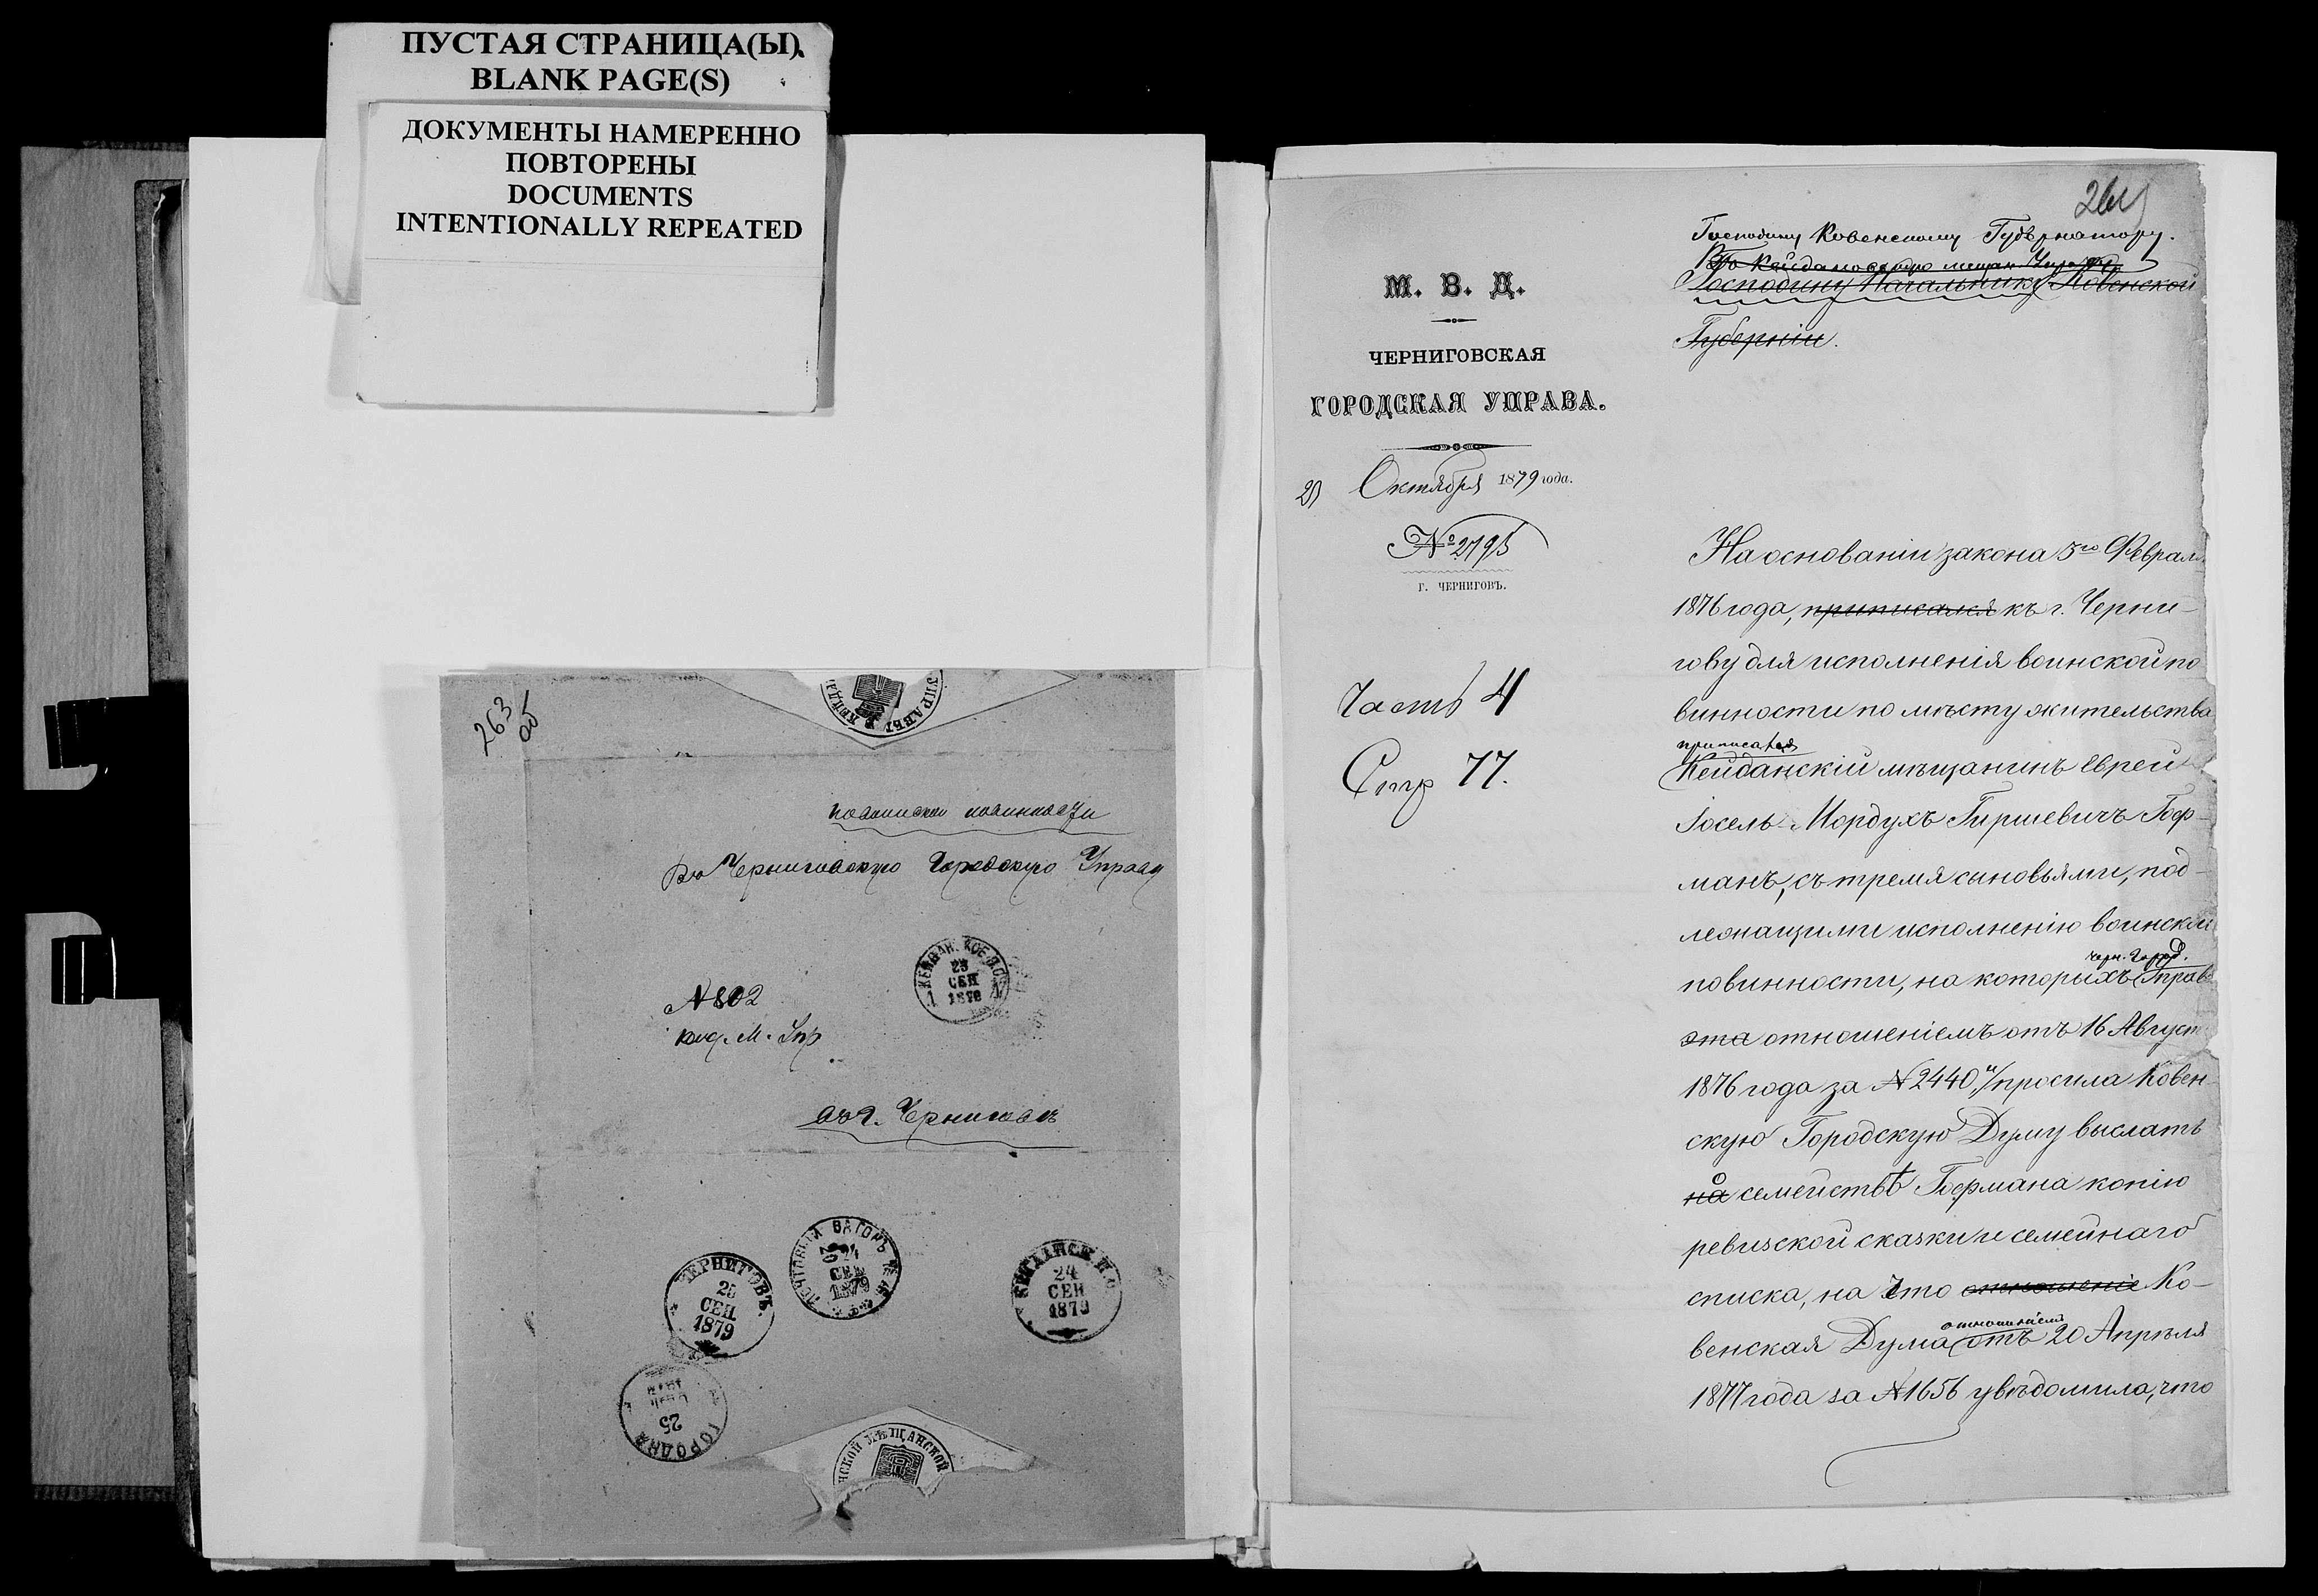 ПУСТАЯ СТРАНИЦА(Ы)
BLANK PAGE(S)
ДОКУМЕНТЫ НАМЕРЕННО
ПОВТОРЕНЫ
DOCUMENTS
INTENTIONALLY REPEATED
263
об
УПРАВЫ
По воинской повинности
Въ Черниговскую Городскую Управу
КЕЙДАН. КОВ.
23
СЕН
1879
№ 802
Кейд. М. Упр
въ г. Черниговъ
ЧЕРНИГОВЪ.
25
СЕН
1879
ПОЧТОВЫЙ ВАГОНЪ №
24
СЕН
1879
24
СЕН
1879
ГОРОДНЯ
25
НСКОЙ МѢЩАНСКОЙ
264
Господину Ковенскому Губернатору.
Въ Кейдановскую мещан. Управу
Господину Начальнику Ковенской
Губерніи.
М. В. Д.
ЧЕРНИГОВСКАЯ
ГОРОДСКАЯ УПРАВА.
Октября 1879 года.
№ 2795
Г. ЧЕРНИГОВЪ.
Часть 4
Стр 77.
На основаніи закона 3го Феврал.
1876 года, приписался къ г. Черни-
гову для исполненія воинской по
винности по мѣсту жительства
приписался
Кейданскій мѣщанинъ Еврей
Іосель-Мордухъ Гиршевичъ Гоф-
манъ, съ тремя сыновьями, под-
лежащими исполненію воинской
черн. Город.
повинности, на которыхъ Управа
эта отношеніемъ отъ 16 Август
1876 года за № 2440, просила Ковен-
скую Городскую Думу выслать
о
на семействѣ Гофмана копію
ревизской сказки и семейнаго
списка, на что отношеніе Ко-
отношеніемъ
венская Дума отъ 20 Апрѣля
1877 года за № 1656 увѣдомила, что